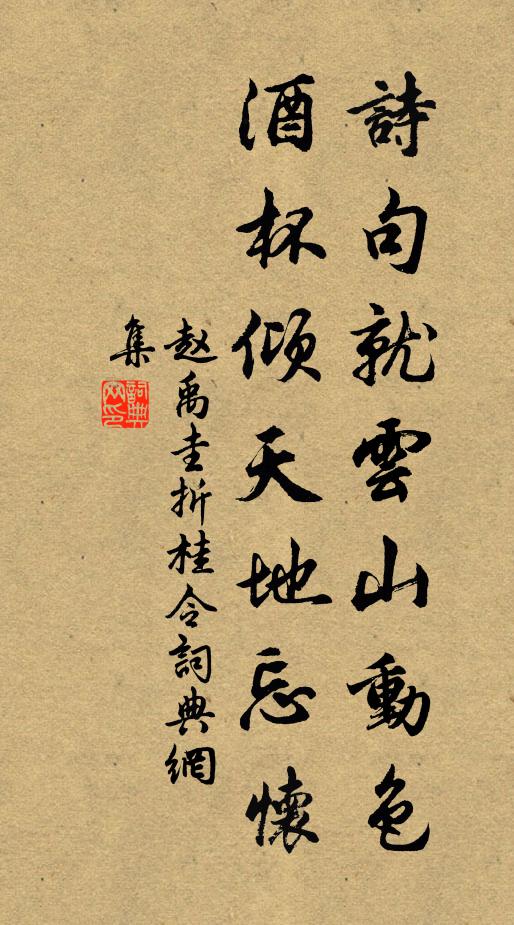 詩句就雲山動色
酒杯傾天地忘懷
赵禹圭折桂令詞典網
集
詞典
网印